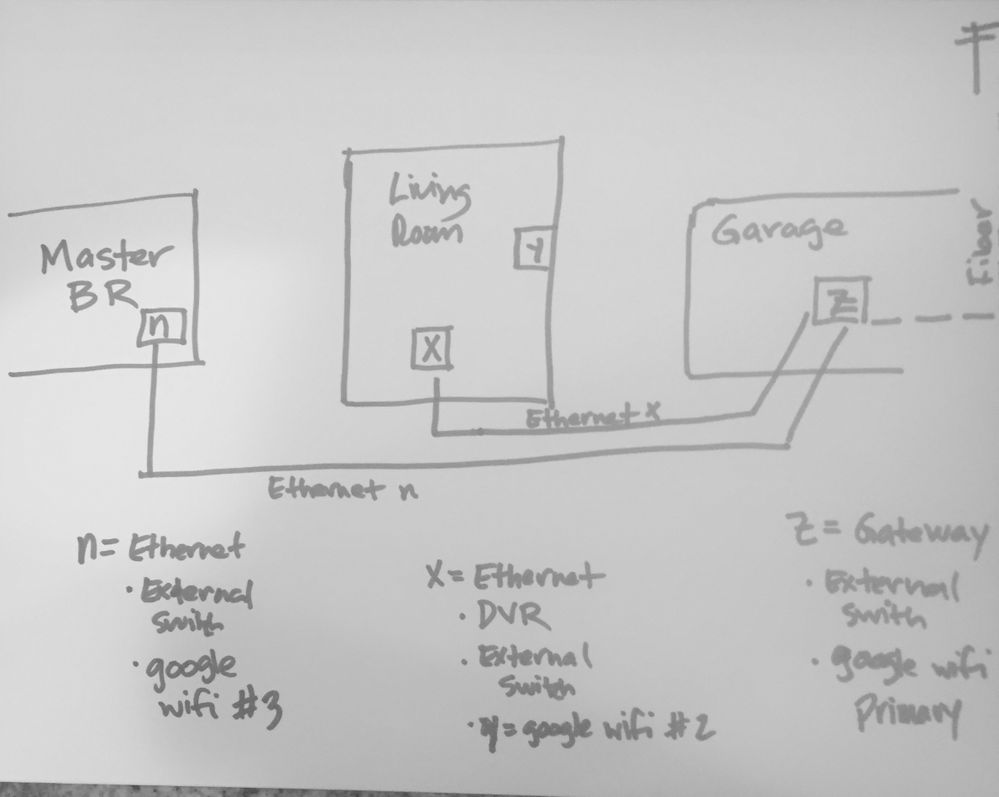 Living
Room
Master
BR
n
X
Y
Garage
Z
Fiber
Ethernet X
Ethernet n
n = Ethernet
· External
swith
· google
wifi #3
X = Ethernet
· DVR
· External
switch
· y = google wifi #2
Z = Gateway
· External
swith
· google wifi
Primary